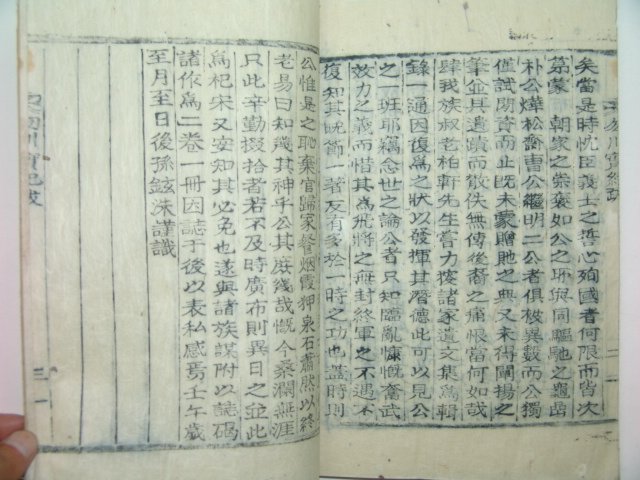 矣當是時忱臣義士之誓心殉國者何限而皆次
第蒙 朝家之崇褒如公之聊與同驅馳之龜嵒
朴公燁松齋曺公繼明二公者俱被異數而公獨
僅試閫資而止旣未蒙贈貤之典又未得闡揚之
筆並與遺蹟而散佚無傳後裔之痛恨當何如哉
肆我族叔老柏軒先生嘗力搜諸家遺文集爲輯
錄一通因復爲之狀以發揮其潛德此可以見公
之一班耶竊念世之論公者只知臨亂慷慨奮武
效力之義而惜其爲飛將之無封終軍之不遇不
復知其晩節一著反有多於一時之功也盖時則
公惟是之恥棄官歸家餐烟霞狎泉石蕭然以終
老易曰知幾其神乎公其庶幾哉慨今桑瀾無涯
只此辛勤掇拾者若不及時廣布則異日之並此
爲杞宋又安知其必免也遂與諸族謀附以誌碣
諸作爲二卷一冊因誌于後以表私感焉壬午歲
至月至日後孫鉉洙謹識
三